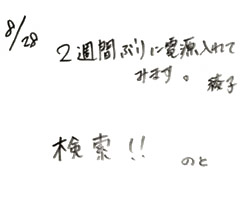 8/28
2週間ぶりに電源入れて
みます。 綾子
検索!! のと